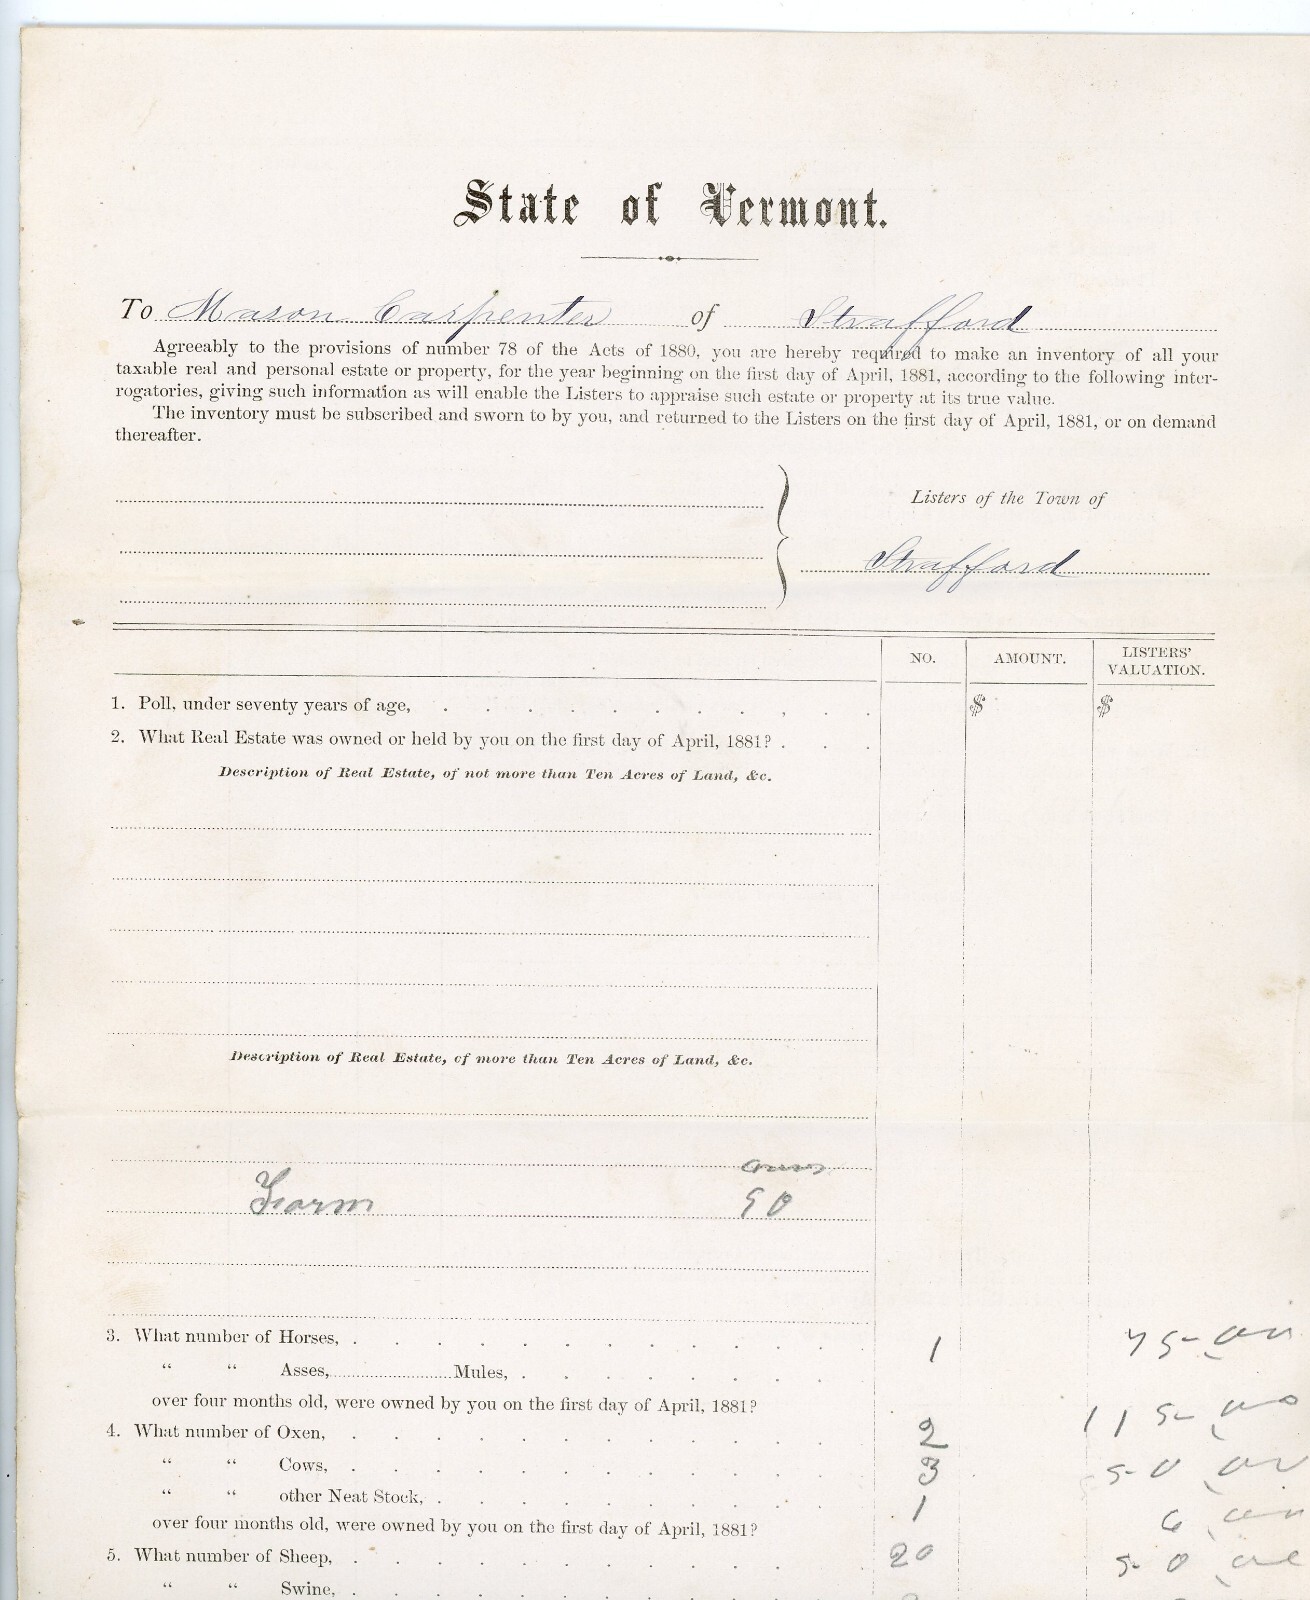 State of Vermont.
To Mason Carpenter of Strafford
Agreeably to the provisions of number 78 of the Acts of 1880, you are hereby required to make an inventory of all your
taxable real and personal estate or property, for the year beginning on the first day of April, 1881, according to the following inter-
rogatories, giving such information as will enable the Listers to appraise such estate or property at its true value.
The inventory must be subscribed and sworn to by you, and returned to the Listers on the first day of April, 1881, or on demand
thereafter.
Listers of the Town of
Strafford
NO. AMOUNT. LISTERS' VALUATION.
1. Poll, under seventy years of age, $ $
2. What Real Estate was owned or held by you on the first day of April, 1881?
Description of Real Estate, of not more than Ten Acres of Land, &c.
Description of Real Estate, of more than Ten Acres of Land, &c.
acres
Farm 90
3. What number of Horses, 1 75.00
" " Asses, Mules,
over four months old, were owned by you on the first day of April, 1881?
4. What number of Oxen, 2 115.00
" " Cows, 3 50.00
" " other Neat Stock, 1 6.00
over four months old, were owned by you on the first day of April, 1881?
5. What number of Sheep, 20 50.00
" " Swine,